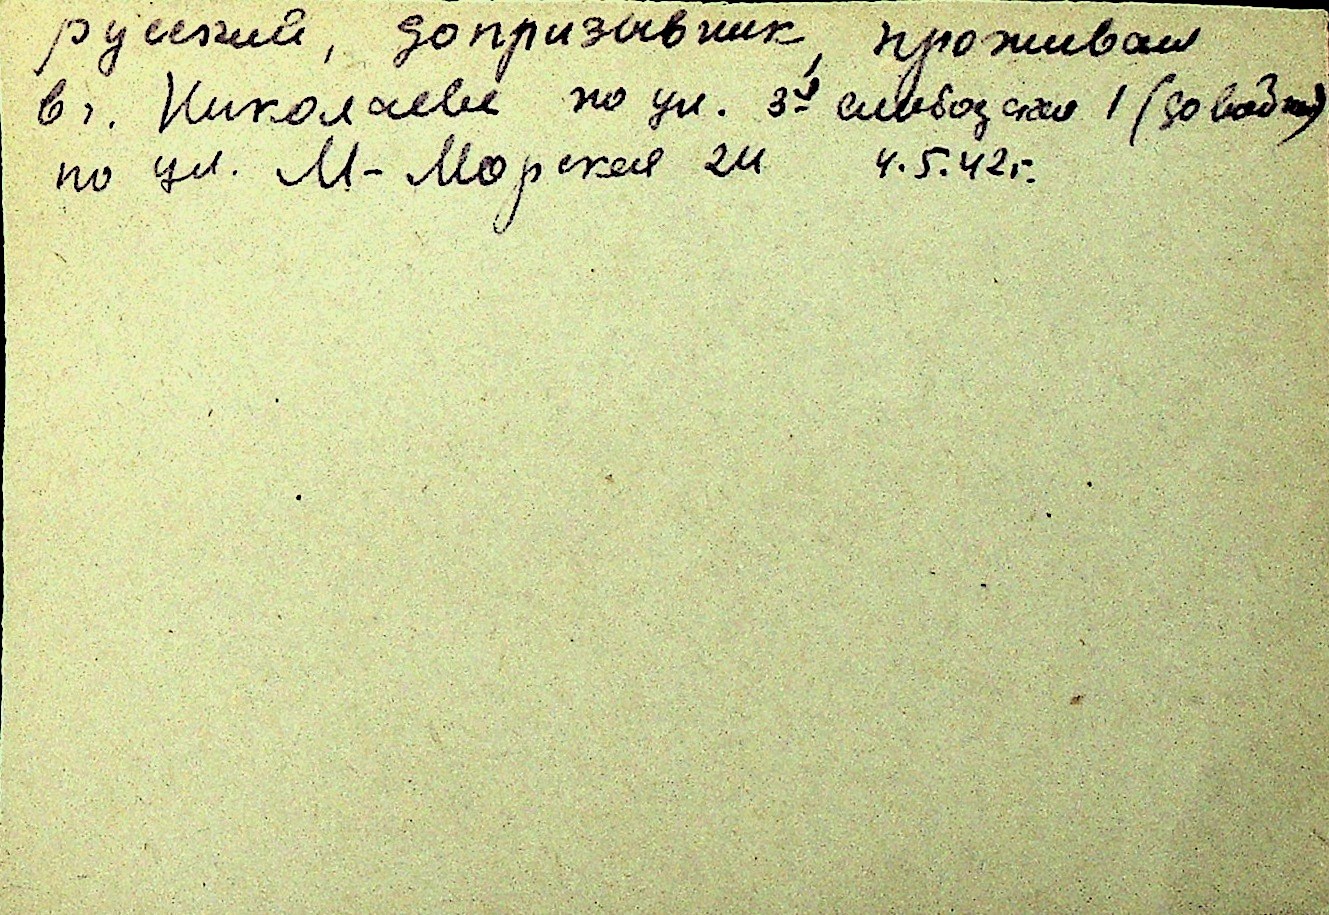 русский, допризывник, проживал
в г. Николаеве по ул. 3я слободская 1 (до войны)
по ул. М-Морская 24 4.5.42г.